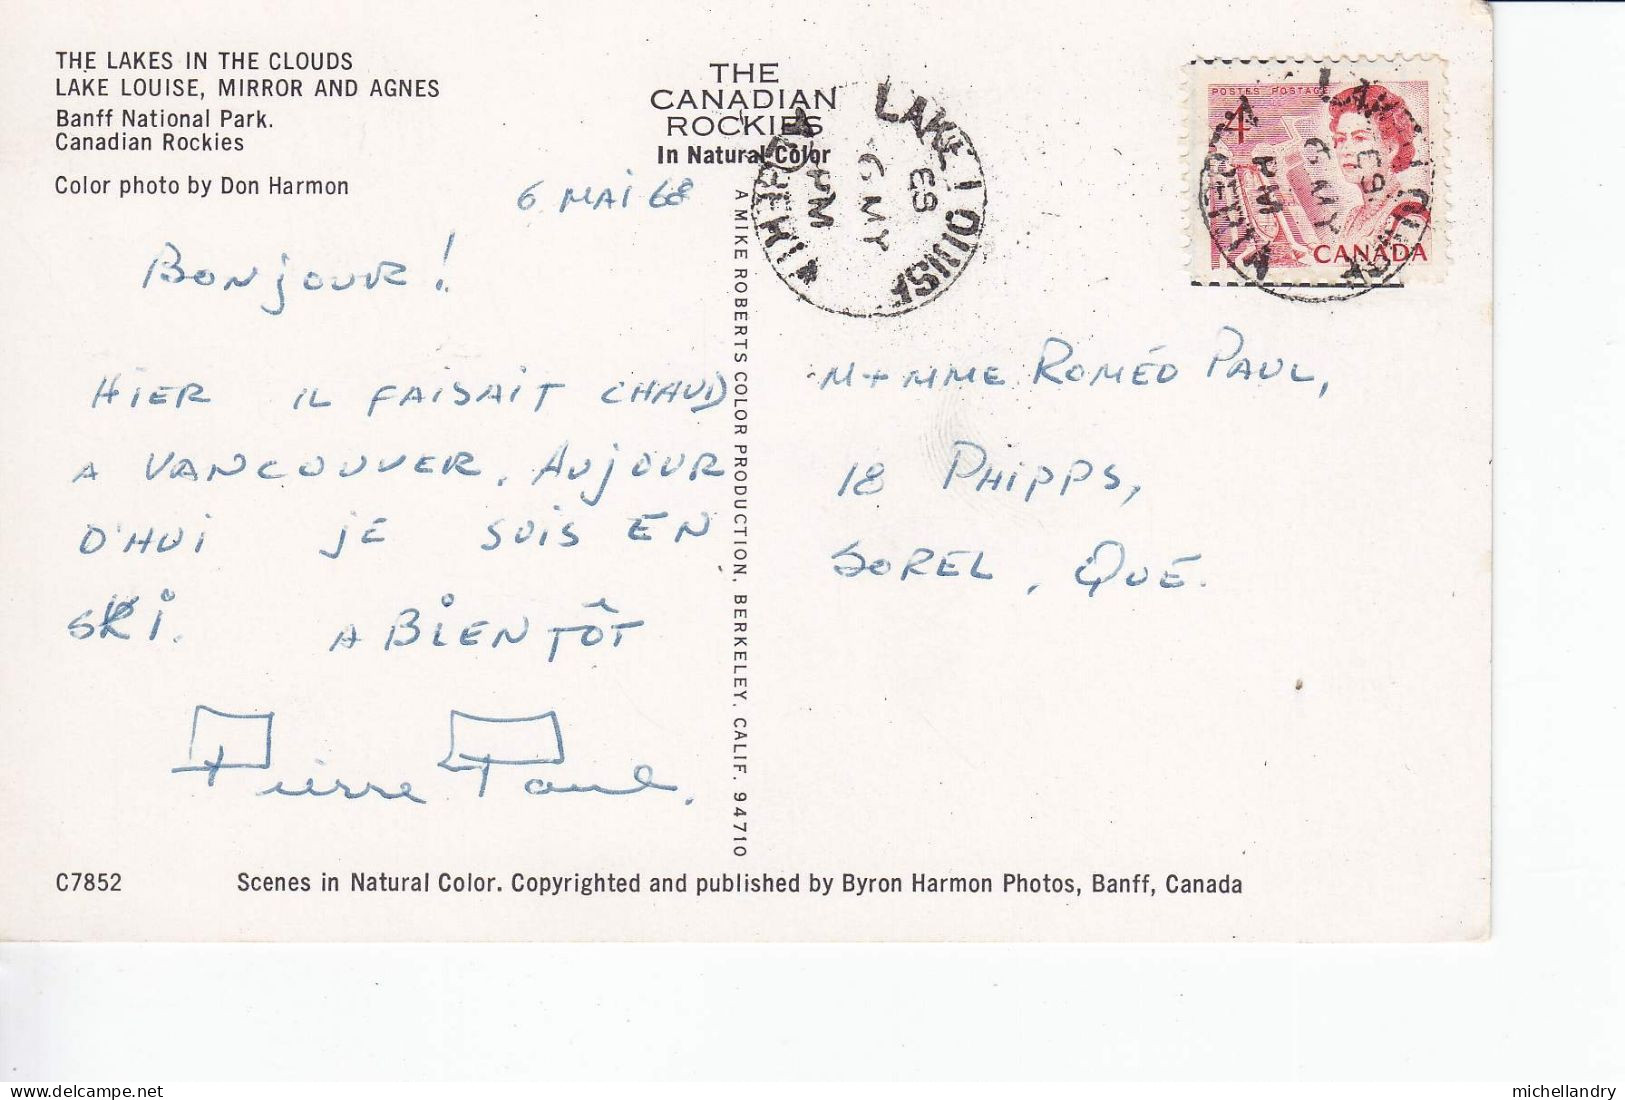 THE LAKES IN THE CLOUDS
LAKE LOUISE, MIRROR AND AGNES
Banff National Park.
Canadian Rockies
Color photo by Don Harmon
THE
CANADIAN
ROCKIES
In Natural Color
6 MAI 68
BONJOUR!
HIER IL FAISAIT CHAUD
A VANCOUVER. AUJOUR
D'HUI JE SUIS EN
SKI. A BIENTÔT
Pierre Paul.
A MIKE ROBERTS COLOR PRODUCTION, BERKELEY, CALIF. 94710
LAKE LOUISE
ALBERTA
PM
6 MY
POSTES POSTAGE
4
CANADA
LAKE LOUISE
ALBERTA
PM
6 MY
M + MME ROMÉO PAUL,
18 PHIPPS,
SOREL, QUÉ.
C7852
Scenes in Natural Color. Copyrighted and published by Byron Harmon Photos, Banff, Canada
michellandry